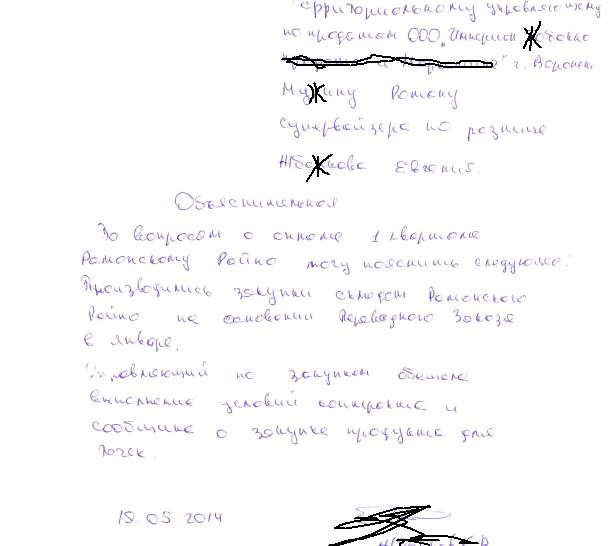 Территориальному управляющему
по продажам ООО „Империя
г. Воронеж
Роману
Супервайзера по рознице
Евгения.
Объяснительная
По вопросам о 1 квартале
Рамонскому Райпо могу пояснить следующее:
Производились закупки складом Рамонского
Райпо на основании Заказа
в январе.
Управляющий по закупкам обещала
выполнение условий контракта и
сообщила о закупке продукта для
точек.
19.05 2014